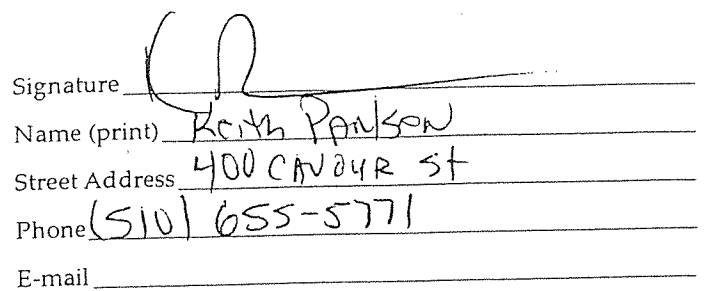 Signature
Name (print) Keith
Street Address 400 CAVOUR St
Phone (510) 655-5771
E-mail